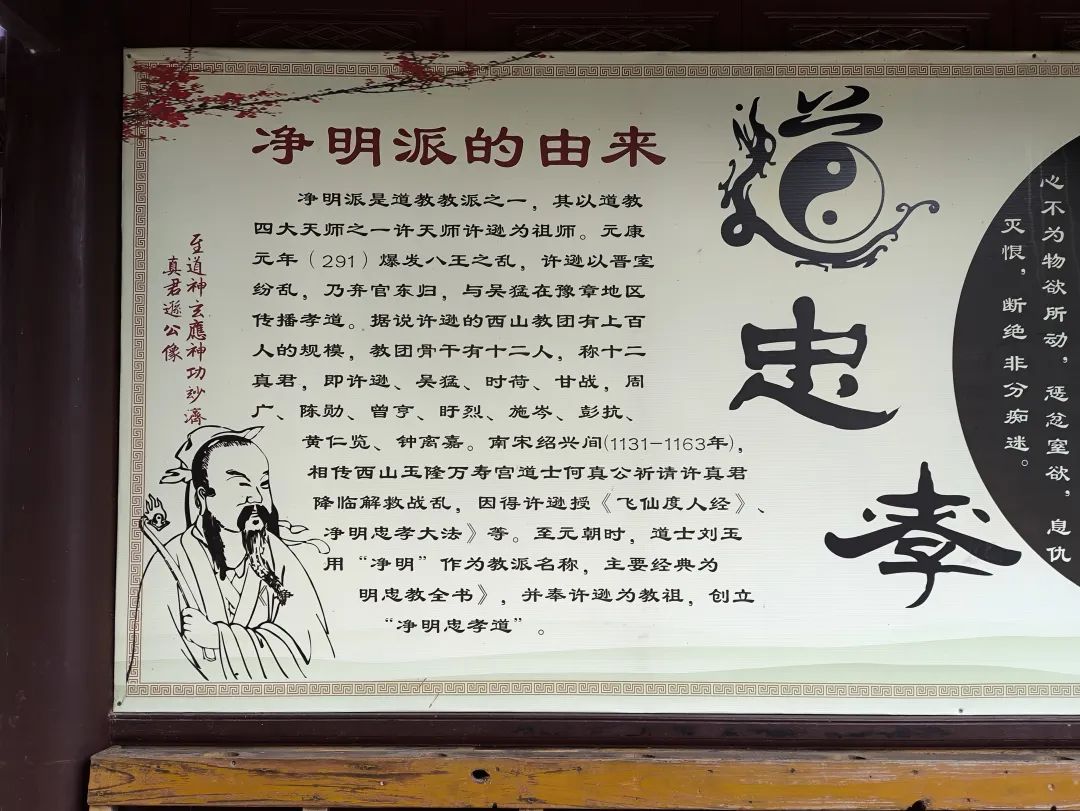 净明派的由来
净明派是道教教派之一，其以道教
四大天师之一许天师许逊为祖师。元康
元年（291）爆发八王之乱，许逊以晋室
纷乱，乃弃官东归，与吴猛在豫章地区
传播孝道。据说许逊的西山教团有上百
人的规模，教团骨干有十二人，称十二
真君，即许逊、吴猛、时荷、甘战，周
广、陈勋、曾亨、盱烈、施岑、彭抗、
黄仁览、钟离嘉。南宋绍兴间(1131-1163年)，
相传西山玉隆万寿宫道士何真公祈请许真君
降临解救战乱，因得许逊授《飞仙度人经》、
净明忠孝大法》等。至元朝时，道士刘玉
用“净明”作为教派名称，主要经典为
净明忠教全书》，并奉许逊为教祖，创立
“净明忠孝道”。
至道神玄應神功妙濟
真君遜公像
道
忠
孝
心不为物欲所动，惩忿窒欲，息仇
灭恨，断绝非分痴迷。